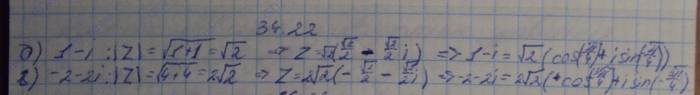 34.22
б) 1-i : |Z| = √1+1 = √2 => Z = √2(√2/2 - √2/2 i) => 1-i = √2(cos(-π/4)+i sin(-π/4))
г) -2-2i : |Z| = √4+4 = 2√2 => Z = 2√2(-√2/2 - √2/2 i) => -2-2i = 2√2(cos(-3π/4)+i sin(-3π/4))